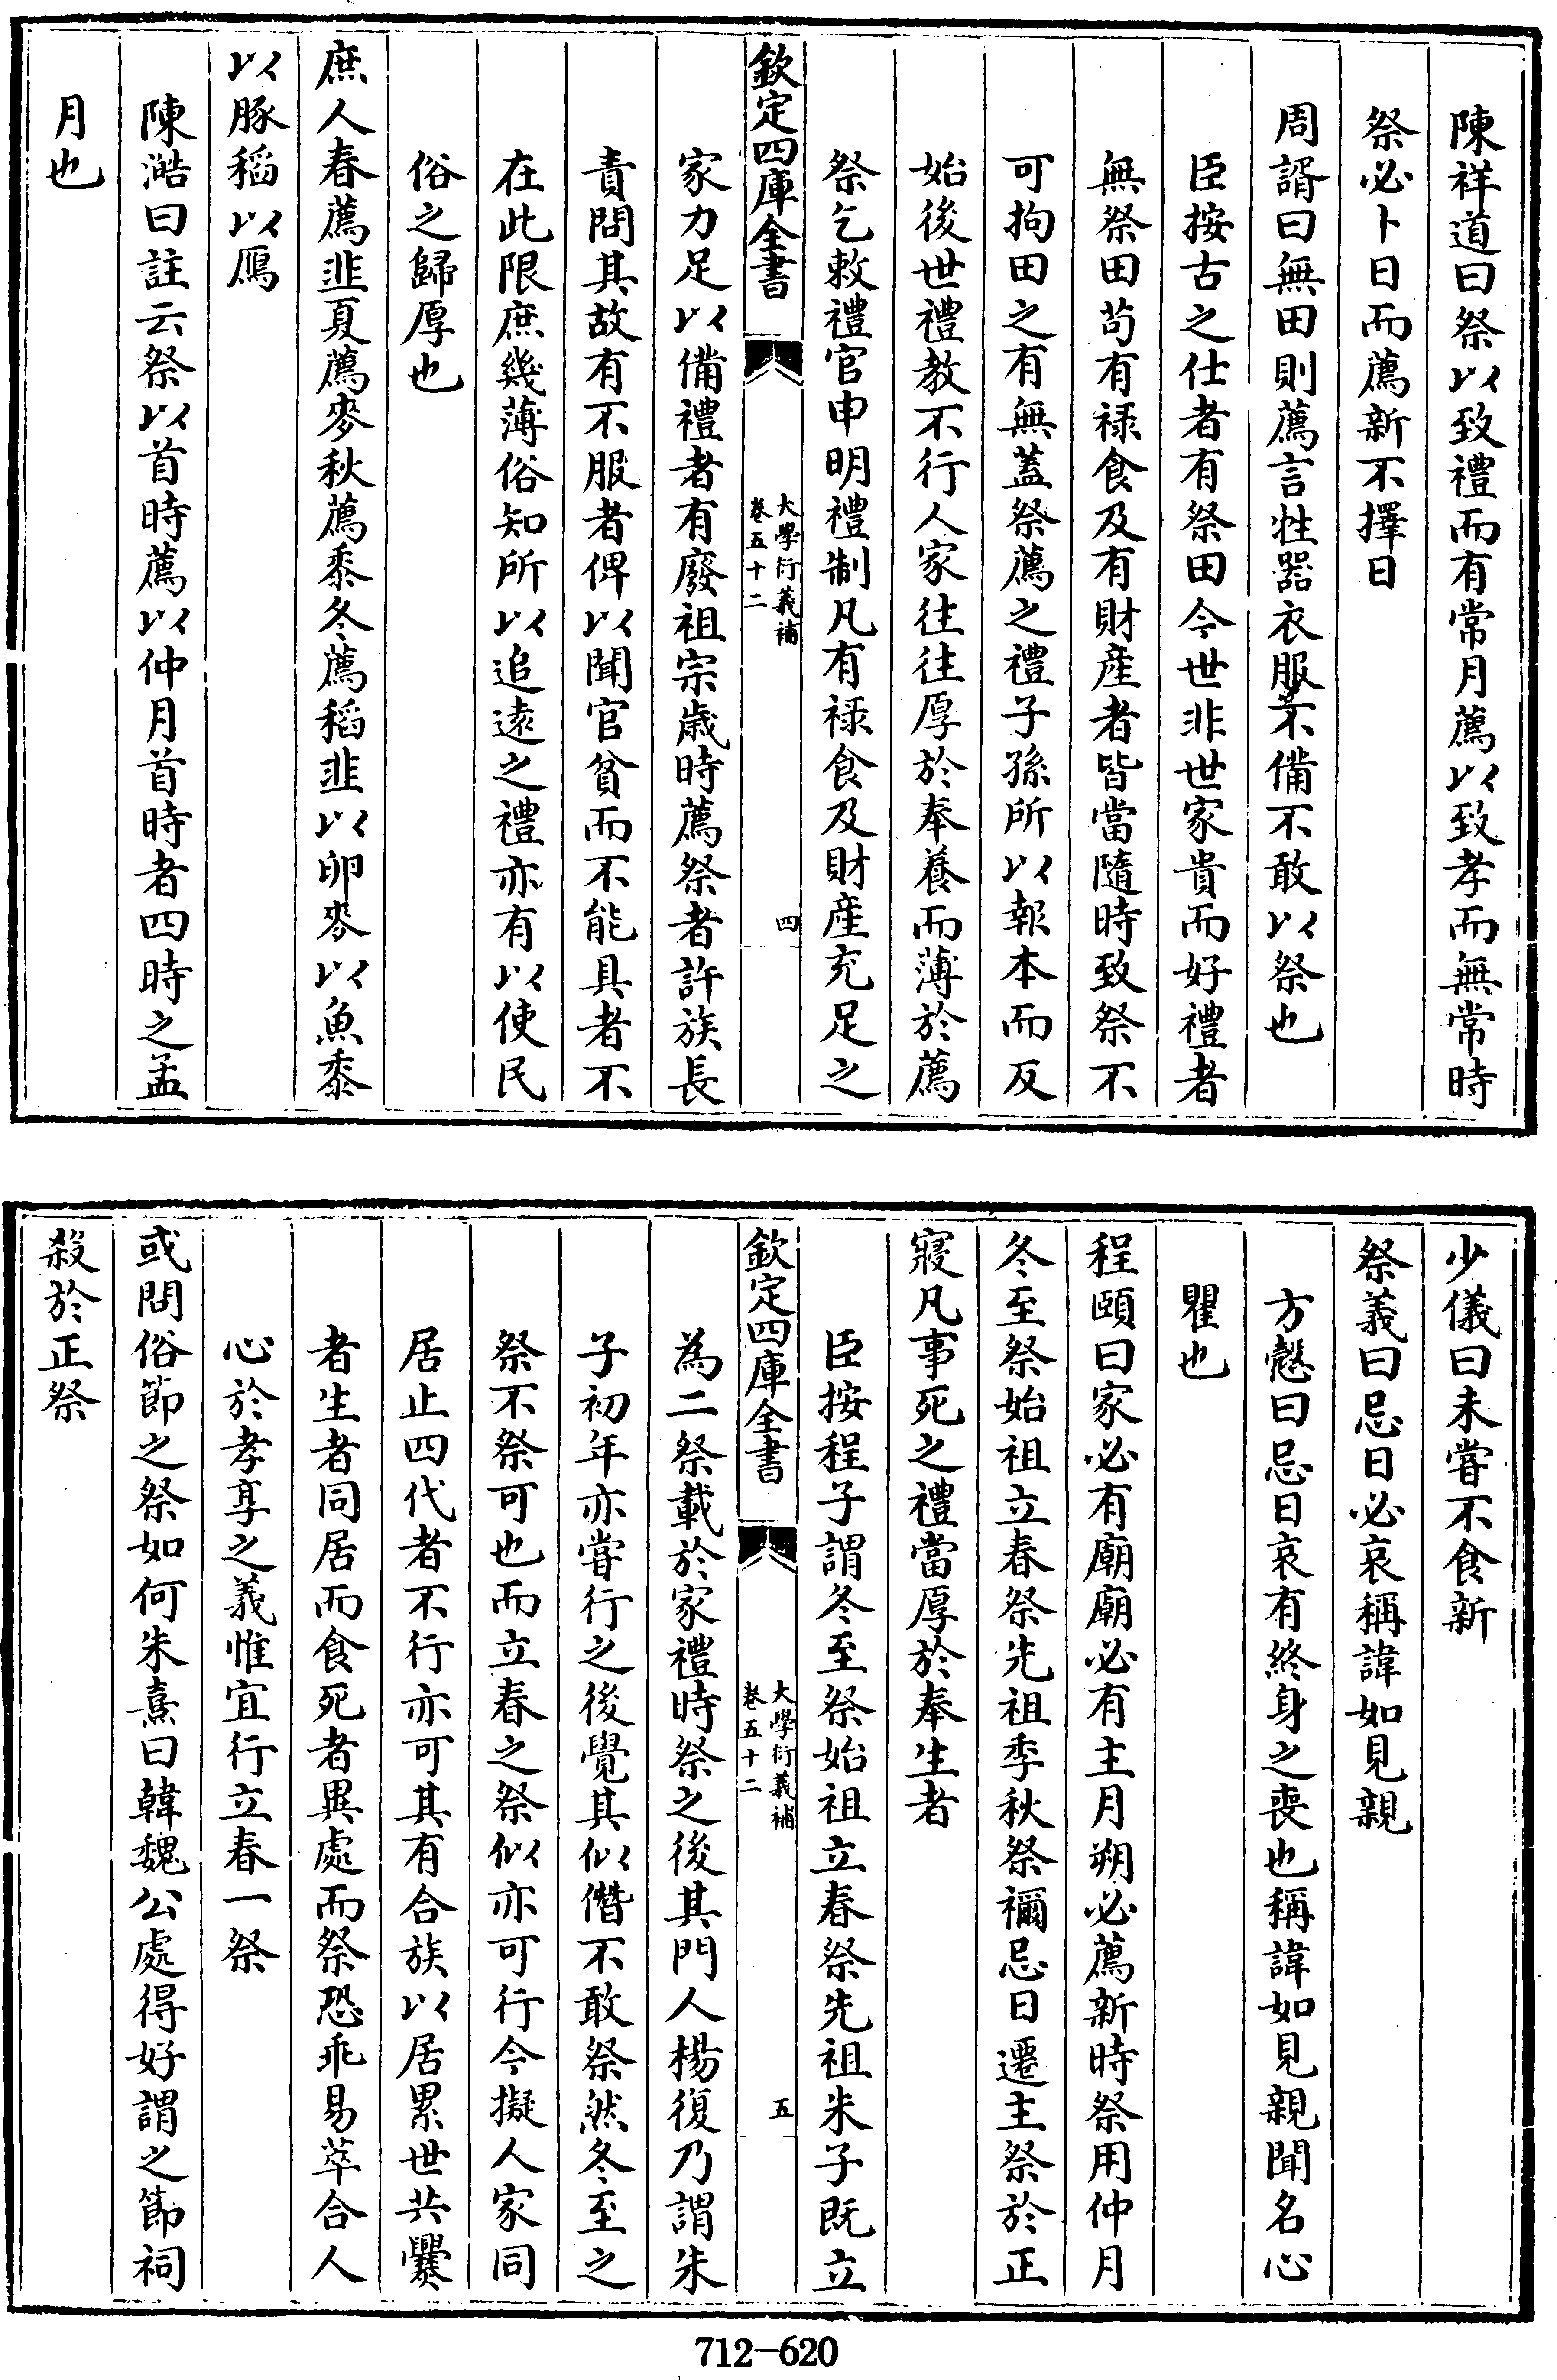 陳祥道曰祭以致禮而有常月薦以致孝而無常時
祭必卜日而薦新不擇日
周諝曰無田則薦言牲器衣服不備不敢以祭也
臣按古之仕者有祭田今世非世家貴而好禮者
無祭田苟有祿食及有財産者皆當隨時致祭不
可拘田之有無蓋祭薦之禮子孫所以報本而反
始後世禮教不行人家往往厚於奉養而薄於薦
祭乞敕禮官申明禮制凡有祿食及財産充足之
欽定四庫全書
大學衍義補
卷五十二
四
家力足以備禮者有廢祖宗歲時薦祭者許族長
責問其故有不服者俾以聞官貧而不能具者不
在此限庶幾薄俗知所以追遠之禮亦有以使民
俗之歸厚也
庶人春薦韭夏薦麥秋薦黍冬薦稻韭以卵麥以魚黍
以豚稻以鴈
陳澔曰註云祭以首時薦以仲月首時者四時之孟
月也
少儀曰未嘗不食新
祭義曰忌日必哀稱諱如見親
方慤曰忌日哀有終身之喪也稱諱如見親聞名心
瞿也
程頤曰家必有廟廟必有主月朔必薦新時祭用仲月
冬至祭始祖立春祭先祖季秋祭禰忌日遷主祭於正
寢凡事死之禮當厚於奉生者
臣按程子謂冬至祭始祖立春祭先祖朱子既立
欽定四庫全書
大學衍義補
卷五十二
五
為二祭載於家禮時祭之後其門人楊復乃謂朱
子初年亦嘗行之後覺其似僭不敢祭然冬至之
祭不祭可也而立春之祭似亦可行今擬人家同
居止四代者不行亦可其有合族以居累世共爨
者生者同居而食死者異處而祭恐乖易萃合人
心於孝享之義惟宜行立春一祭
或問俗節之祭如何朱熹曰韓魏公處得好謂之節祠
殺於正祭
712-620